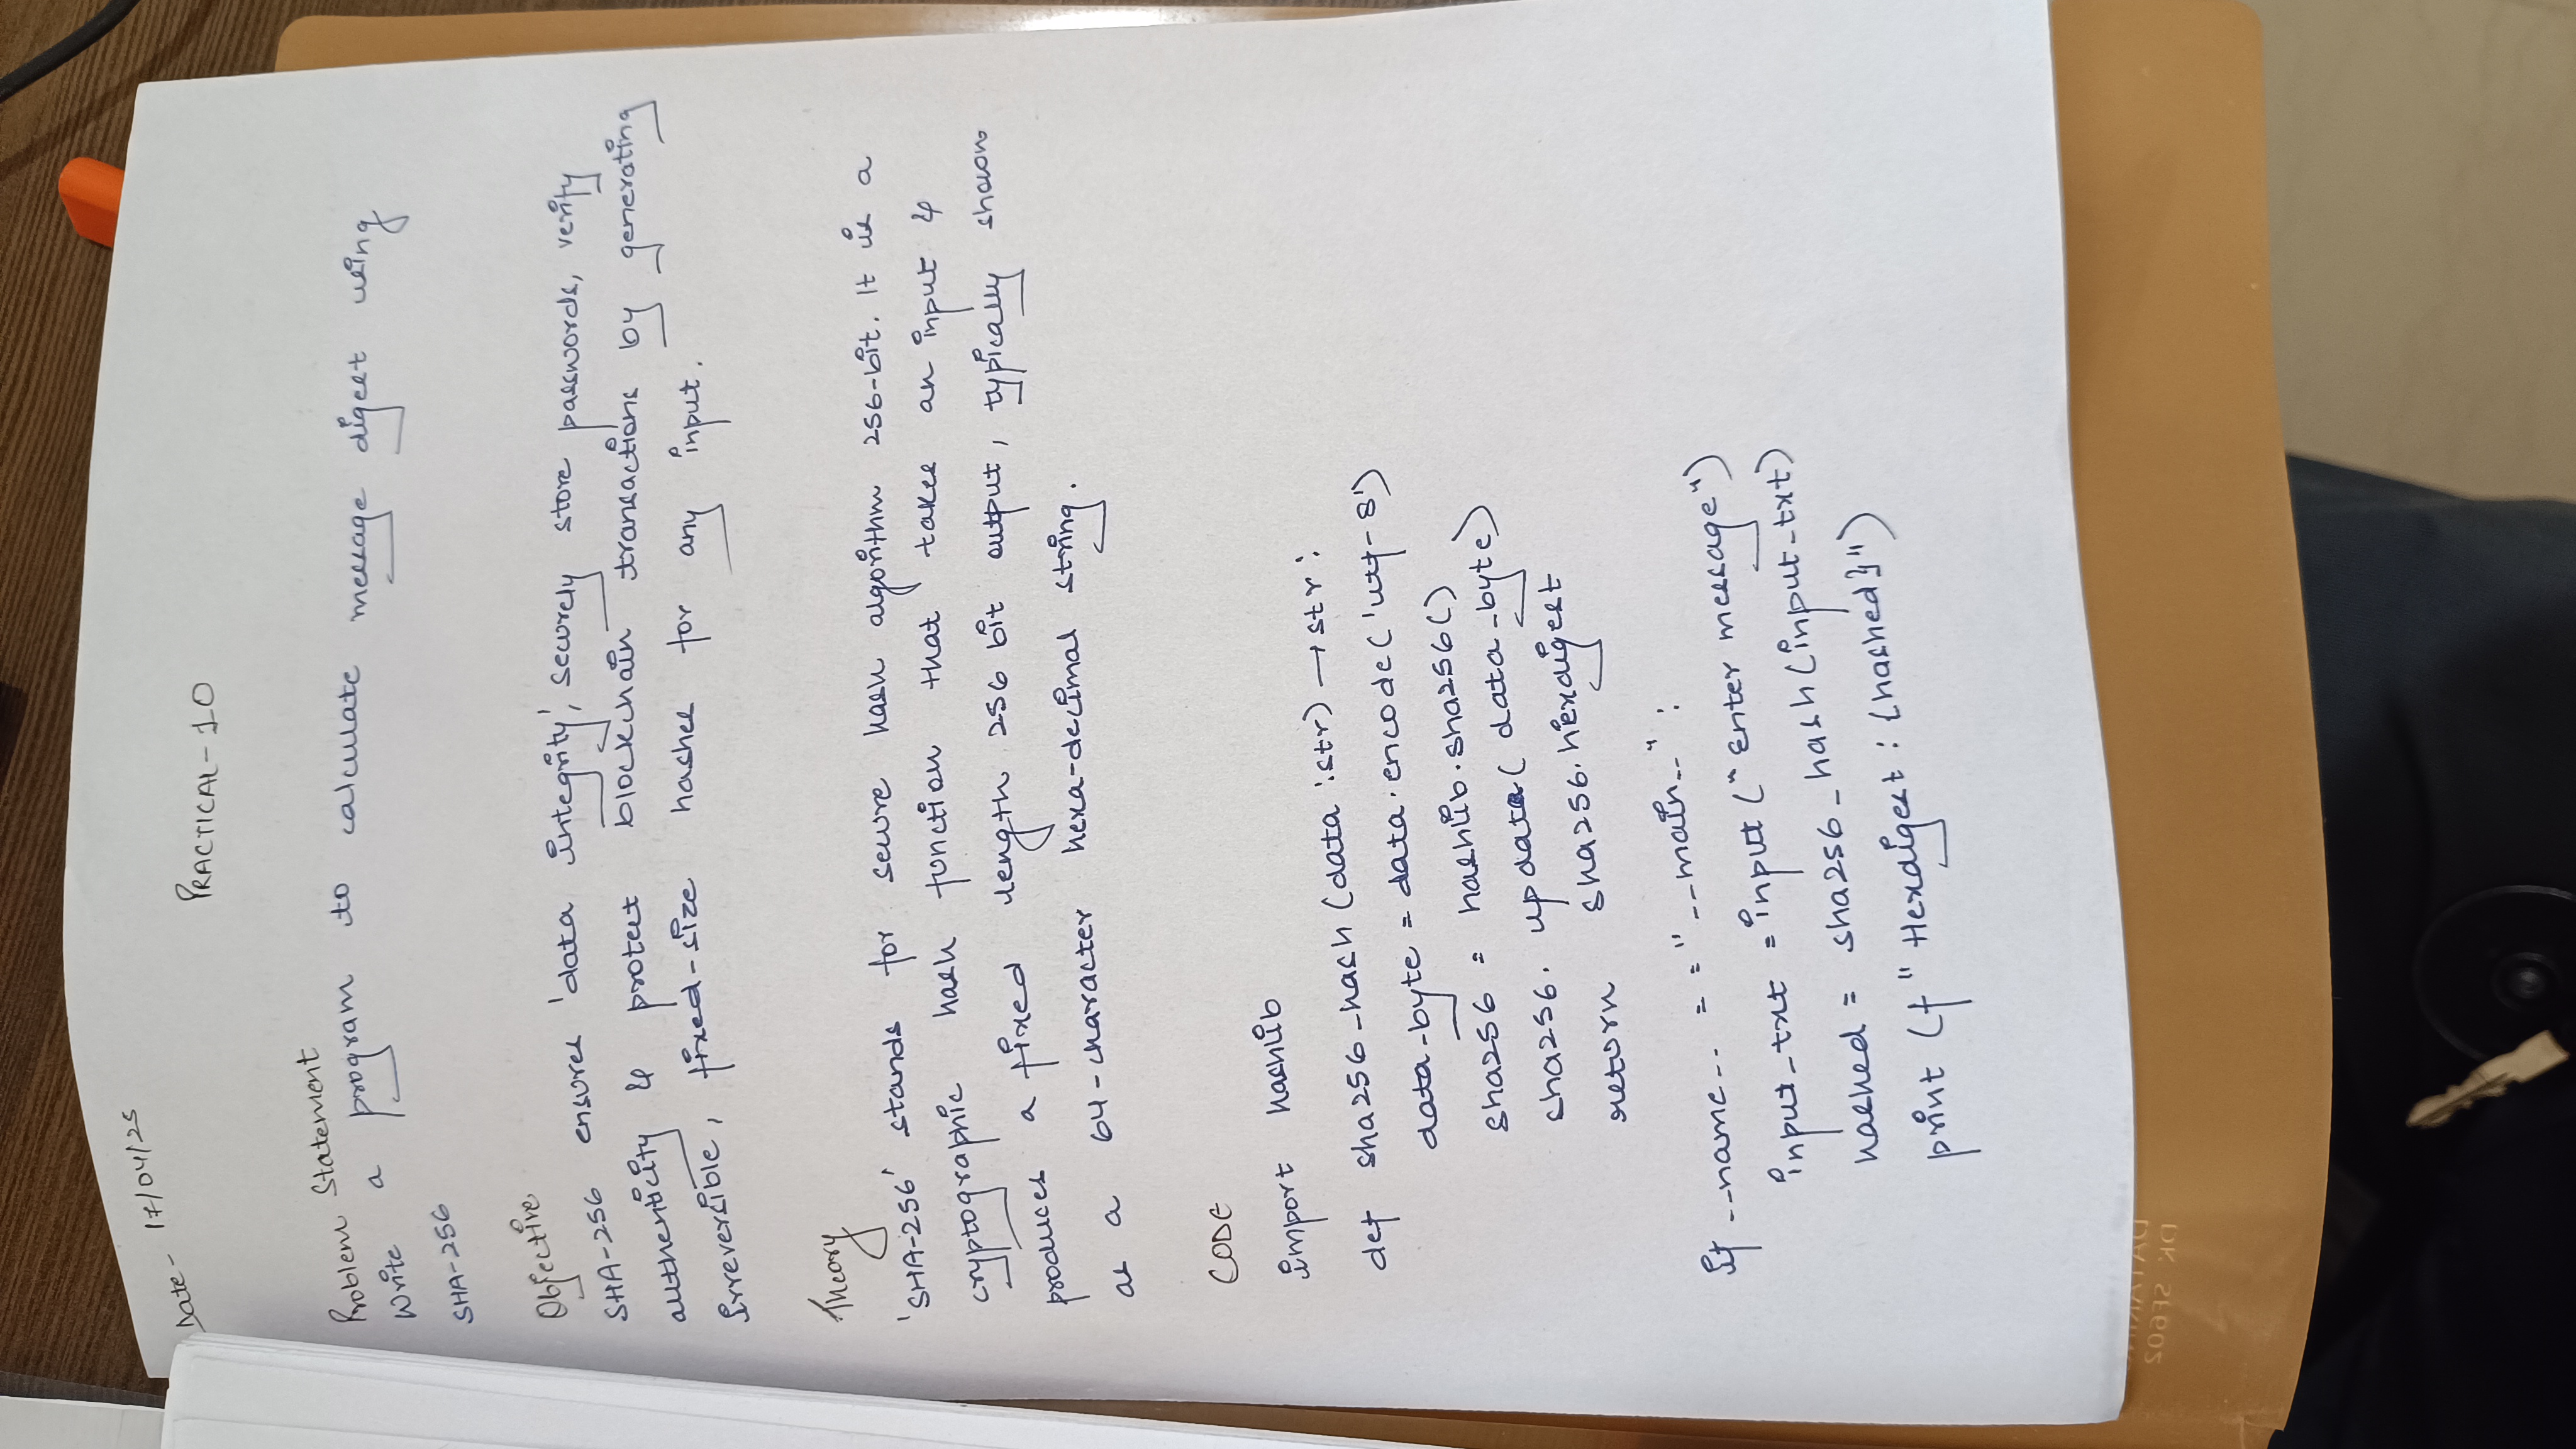 Date - 17/04/25
PRACTICAL-10
Problem Statement
Write a program to calculate message digest using
SHA-256
Objective
SHA-256 ensures 'data integrity', securely store passwords, verify
authenticity & protect blockchain transactions by generating
irreversible, fixed-size hashes for any input.
Theory
'SHA-256' stands for secure hash algorithm 256-bit. It is a
cryptographic hash function that takes an input &
produces a fixed length 256 bit output, typically shown
as a 64-character hexa-decimal string.
CODE
import hashlib
def sha256_hash (data:str) → str:
data_byte = data.encode('utf-8')
sha256 = hashlib.sha256()
sha256. updata( data_byte)
return sha256.hexdigest
if __name__ == "__main__":
input_txt = input ("Enter message")
hashed = sha256_hash (input_txt)
print (f "Hexdigest: {hashed}")
DK SF602